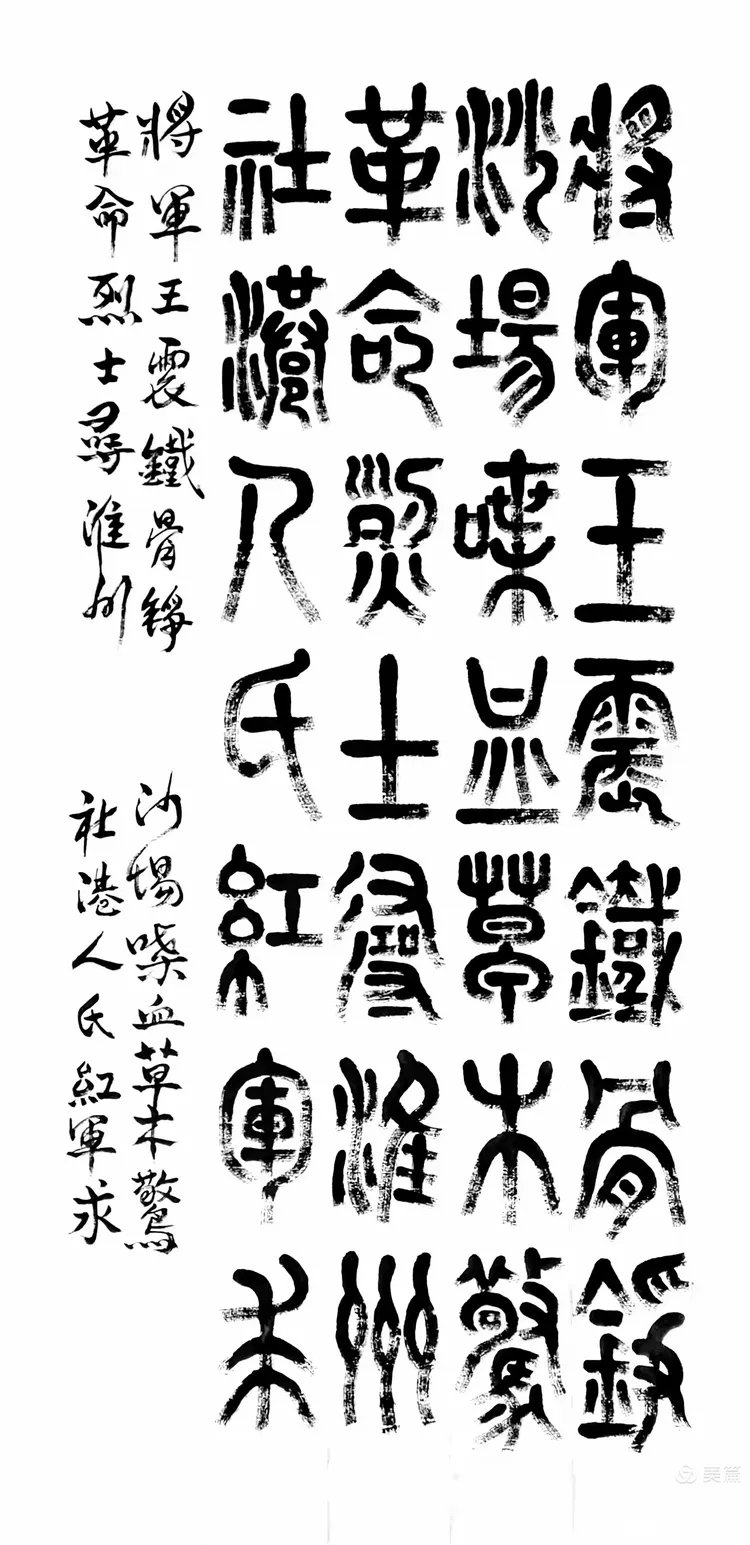 將軍王震鐵骨錚
沙場喋血草木驚
革命烈士尋淮州
社港人氏紅軍求
將軍王震鐵骨錚 沙場喋血草木驚
革命烈士尋淮州 社港人氏紅軍求
美篇